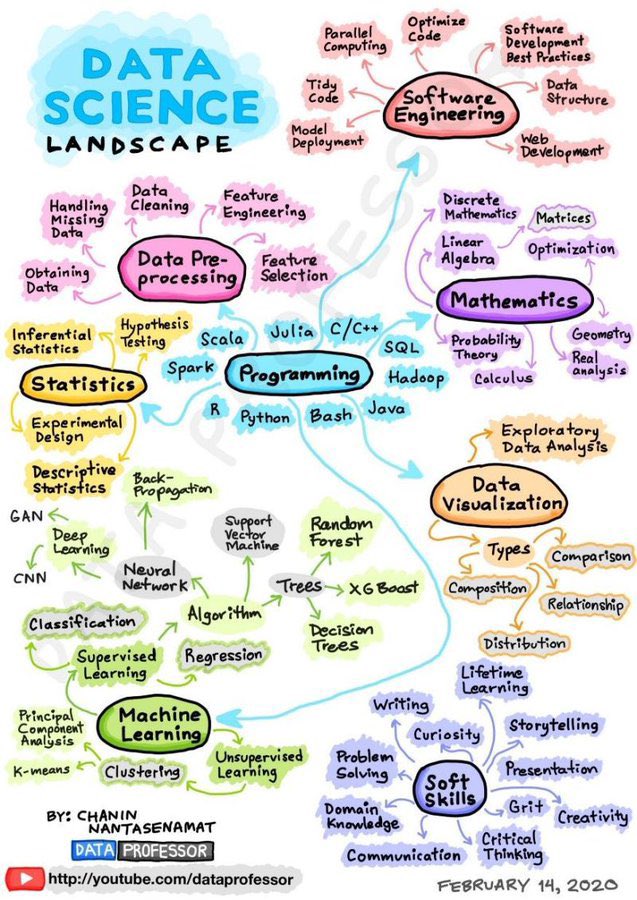 DATA
SCIENCE
LANDSCAPE
Parallel
Computing
Optimize
Code
Software
Development
Best Practices
Tidy
Code
Software
Engineering
Data
Structure
Model
Deployment
Web
Development
Handling
Missing
Data
Data
Cleaning
Feature
Engineering
Obtaining
Data
Data Pre-
processing
Feature
Selection
Discrete
Mathematics
Matrices
Linear
Algebra
Optimization
Mathematics
Probability
Theory
Geometry
Calculus
Real
analysis
Inferential
Statistics
Hypothesis
Testing
Statistics
Experimental
Design
Descriptive
Statistics
Scala
Julia
C/C++
SQL
Spark
Programming
Hadoop
R
Python
Bash
Java
Exploratory
Data Analysis
Data
Visualization
Types
Comparison
Composition
Relationship
Distribution
Back-
Propagation
GAN
Deep
Learning
CNN
Neural
Network
Support
Vector
Machine
Random
Forest
Trees
XG Boost
Algorithm
Decision
Trees
Classification
Supervised
Learning
Regression
Machine
Learning
Principal
Component
Analysis
K-means
Clustering
Unsupervised
Learning
Lifetime
Learning
Writing
Curiosity
Storytelling
Problem
Solving
Soft
Skills
Presentation
Domain
Knowledge
Grit
Creativity
Communication
Critical
Thinking
BY: CHANIN
NANTASENAMAT
DATA PROFESSOR
http://youtube.com/dataprofessor
FEBRUARY 14, 2020
DATA PROFESSOR